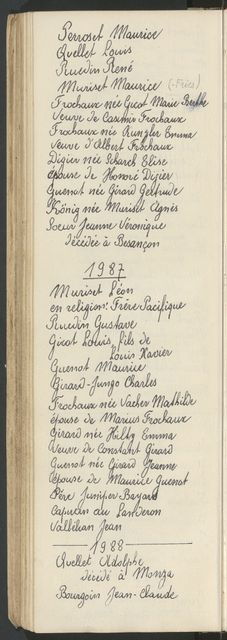 Perroset Maurice
Quellet Louis
Ruedin René
Muriset Maurice (-Fries)
Frochaux née Gicot Marie Berthe
Veuve de Casimir Frochaux
Frochaux née Kunzler Emma
Veuve d'Albert Frochaux
Digier née Scharch Elise
épouse de Honoré Digier
Guenot née Girard Gertrude
König née Muriset Agnès
Soeur Jeanne Véronique
décédée à Besançon
1987
Muriset Léon
en religion: Frère Pacifique
Ruedin Gustave
Gicot Louis, fils de
Louis Xavier
Guenot Maurice
Girard-Jungo Charles
Frochaux née Vacher Mathilde
épouse de Marius Frochaux
Girard née Hildy Emma
Veuve de Constant Girard
Guenot née Girard Jeanne
épouse de Maurice Guenot
Père Juniper Bayard
Capucin au Landeron
Vallélian Jean
1988
Quellet Adolphe
décédé à Monza
Bourgoin Jean-Claude